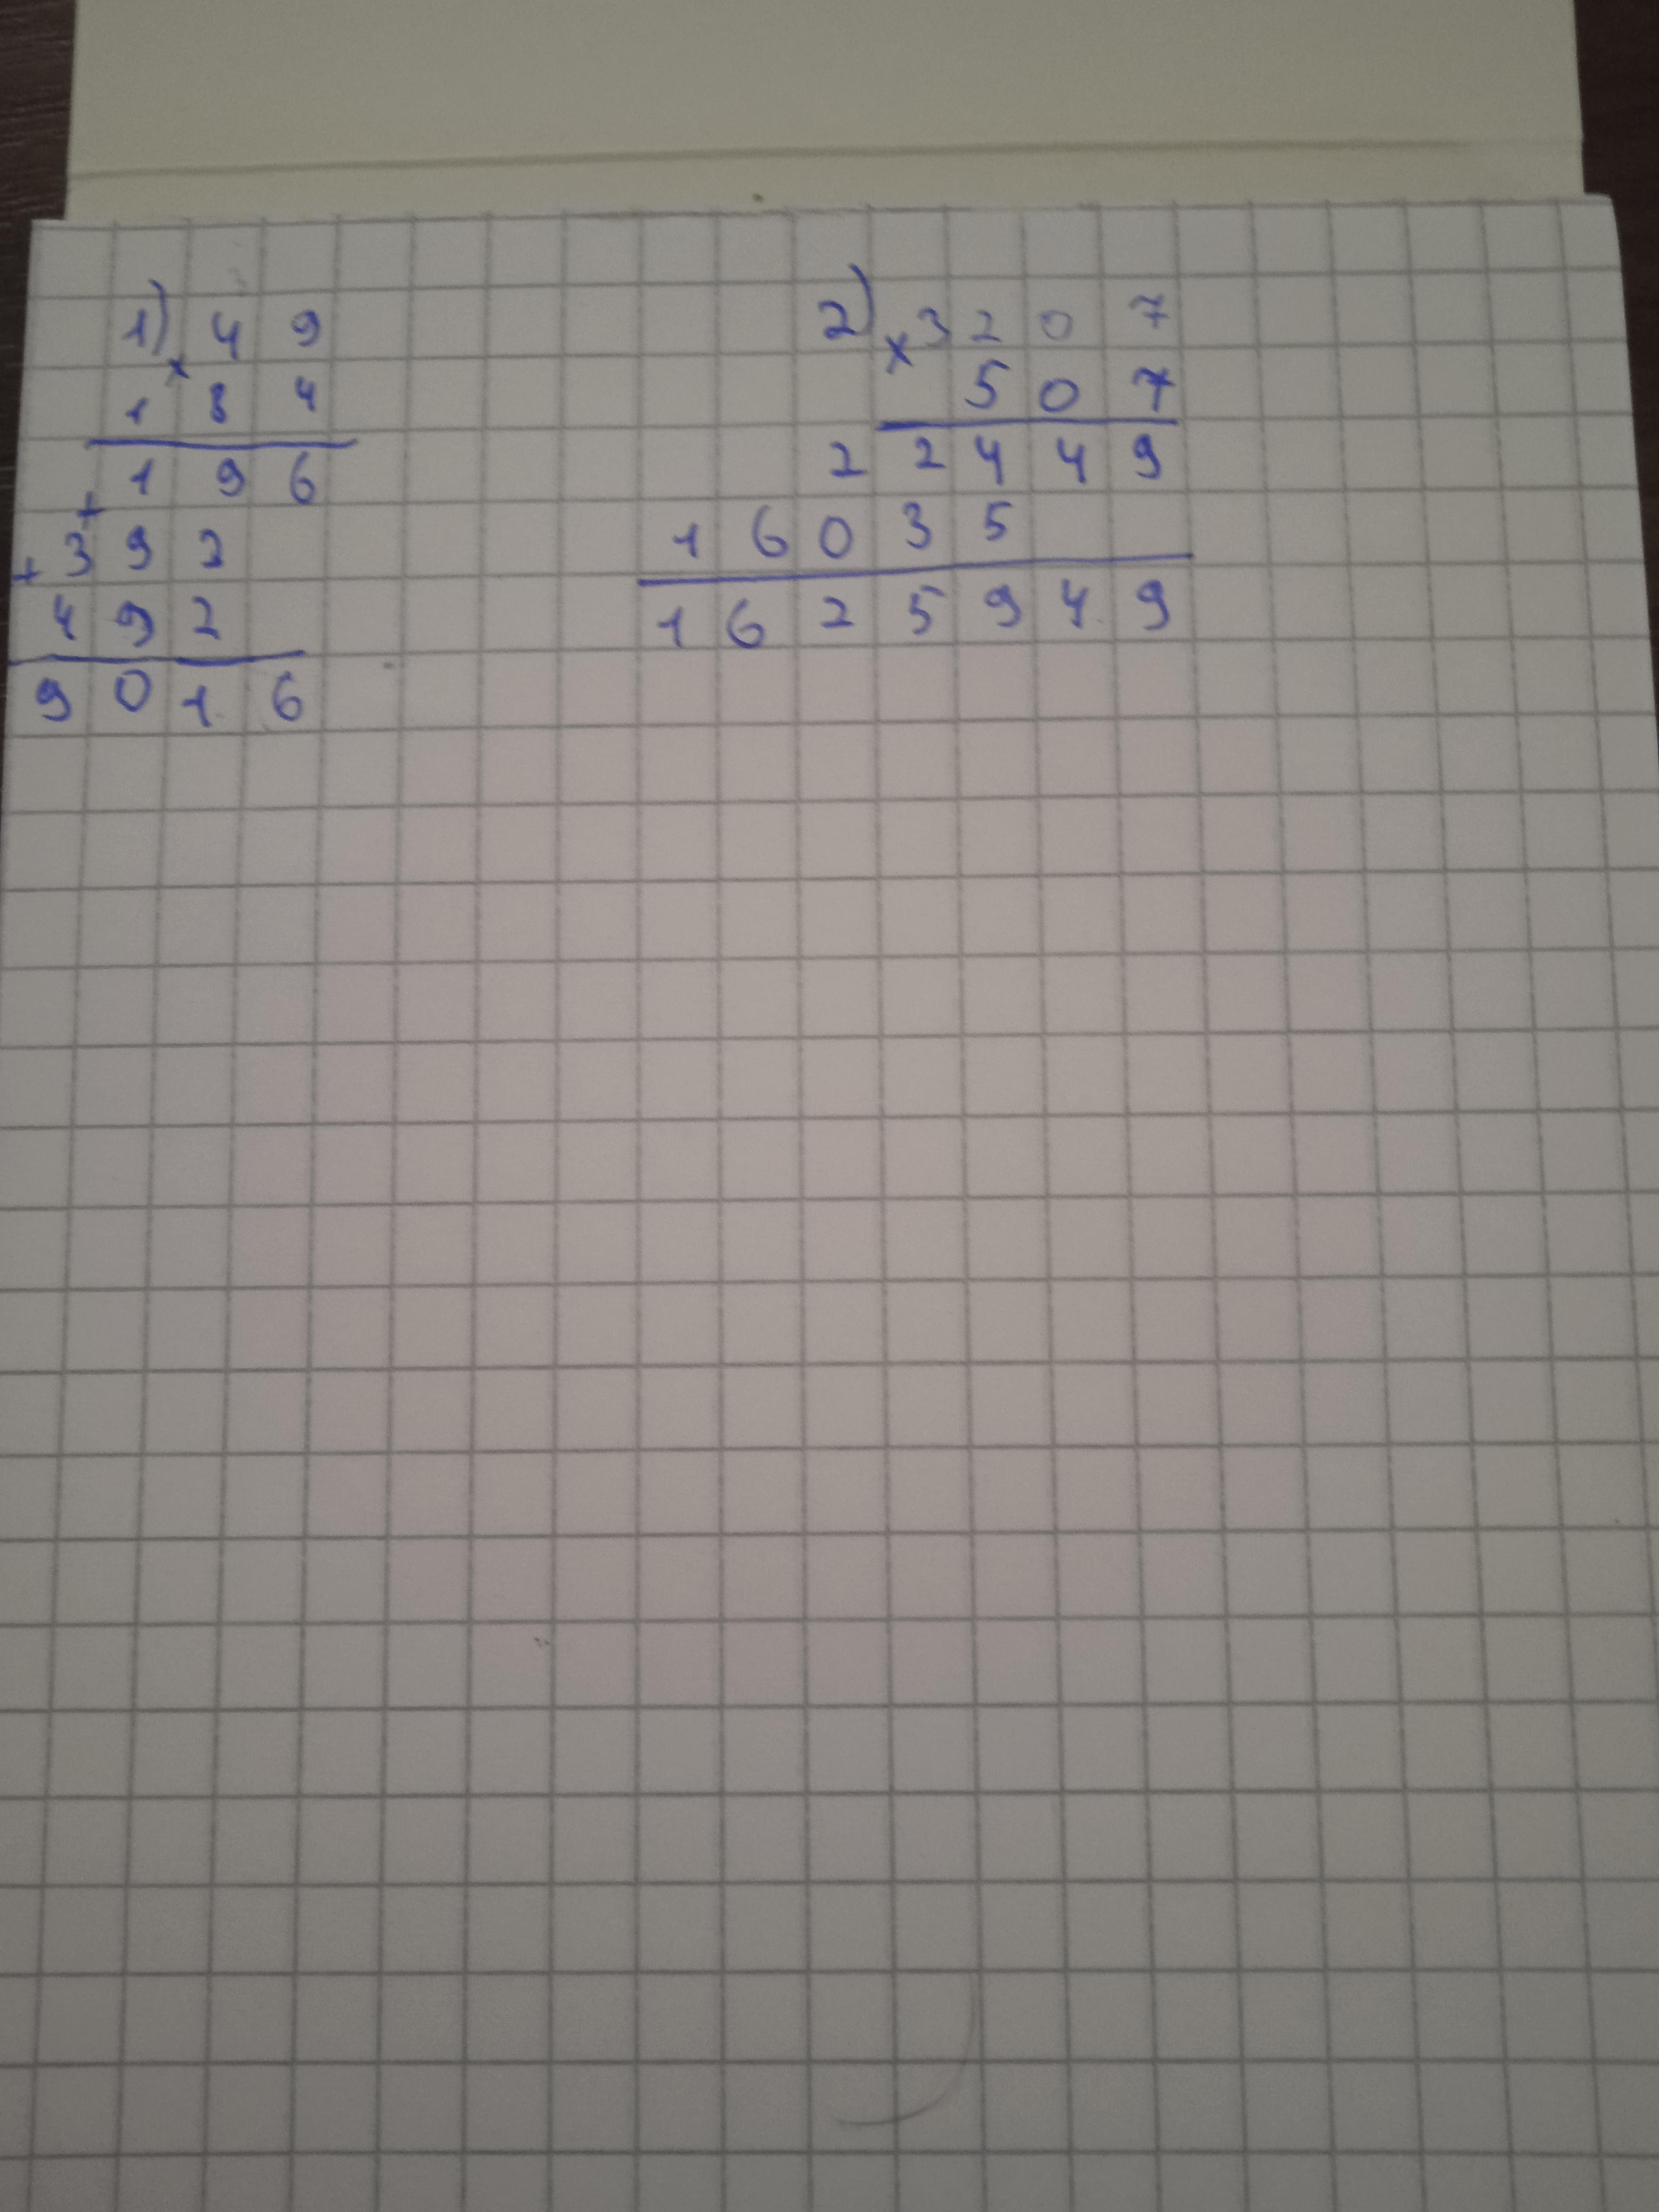 1) 49
× 184
196
+ 392
+ 492
9016
2) × 3207
507
22449
16035
1625949